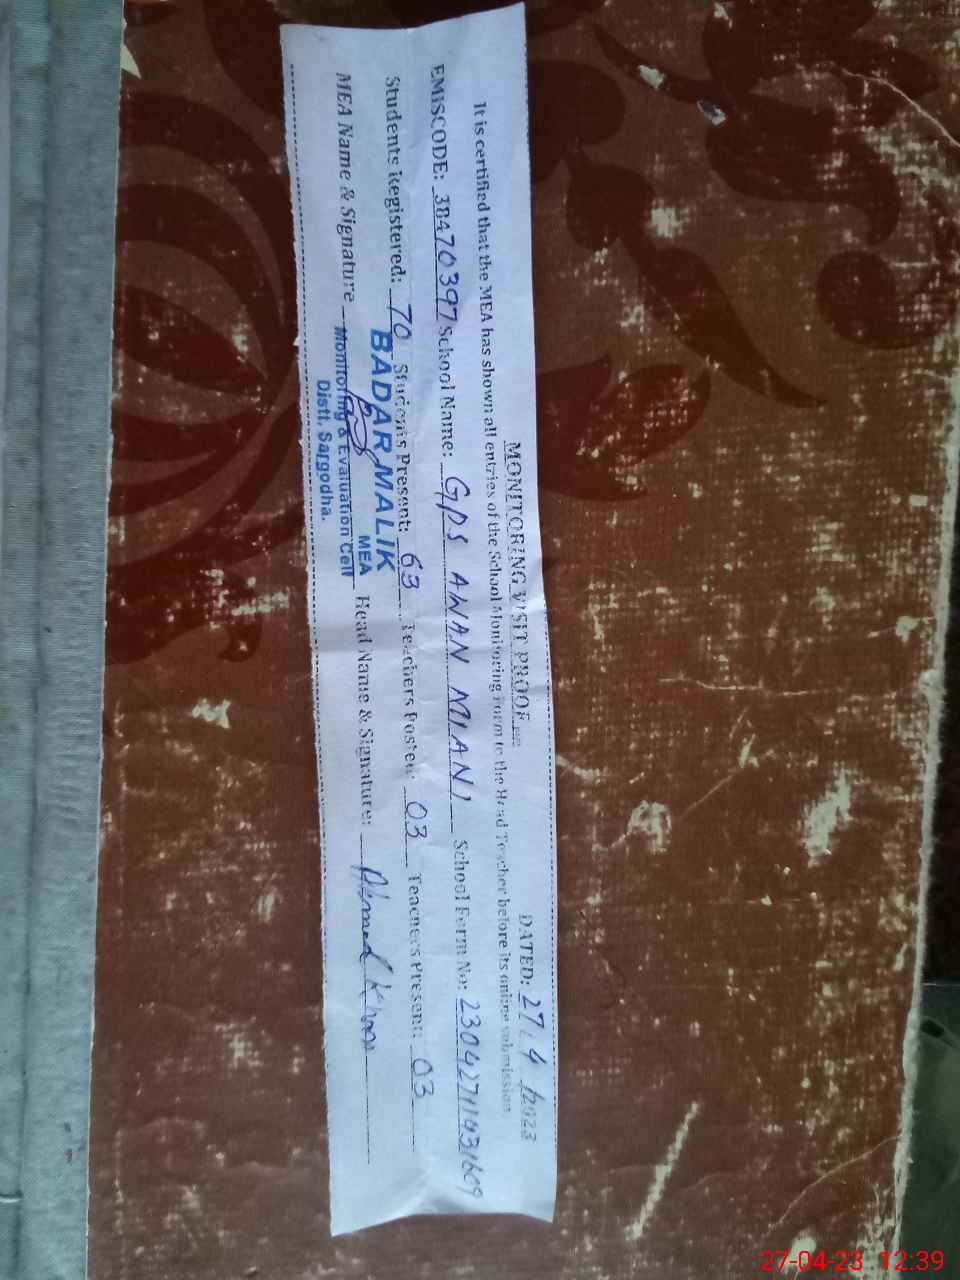 MONITORING VISIT PROOF
DATED: 27.4/2023
It is certified that the MEA has shown all entries of the School Monitoring Form to the Head Teacher before its online submission
EMISCODE: 38470397 School Name: GPS AWAN MIANI School Form No:
Students Registered: 70 Students Present: 63 Teachers Posted: 03 Teachers Present: 03
MEA Name & Signature Head Name & Signature: Ahmed Khan
BADAR MALIK
MEA
Monitoring & Evaluation Cell
Distt. Sargodha.
27-04-23 12:39